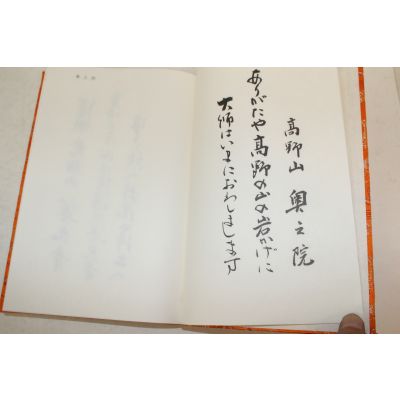 高野山 奥之院
ありがたや高野の山の岩かげに
大師はいまにおわしまします